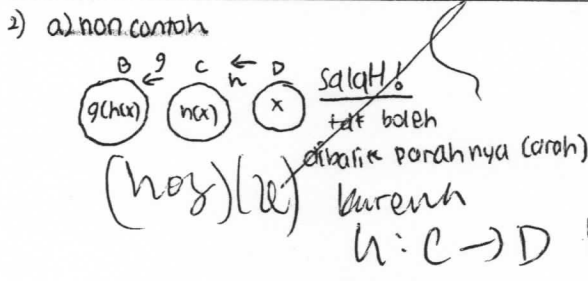 2) a) non contoh
B g C ← D
← h
g(h(x)) h(x) x
SALAH!
tdk boleh
dibalik panahnya (arah)
(hog)(x) karena
h : C → D